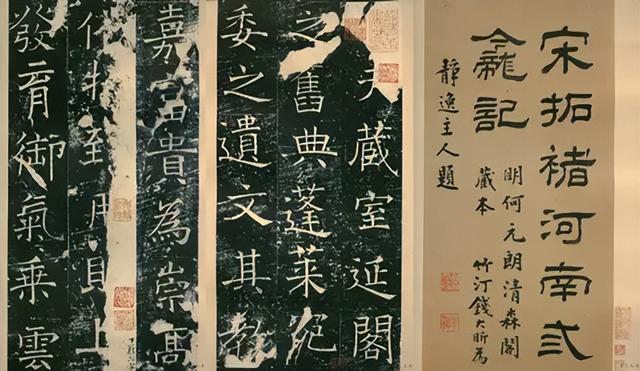 宋拓褚河南弎
龕記
明何元朗清森閣
藏本 竹汀錢大昕為
靜逸主人題
夫藏室延閣
之舊典蓬萊宛
委之遺文其教
嘉富貴為崇高
物致用具上
發育御氣乘雲